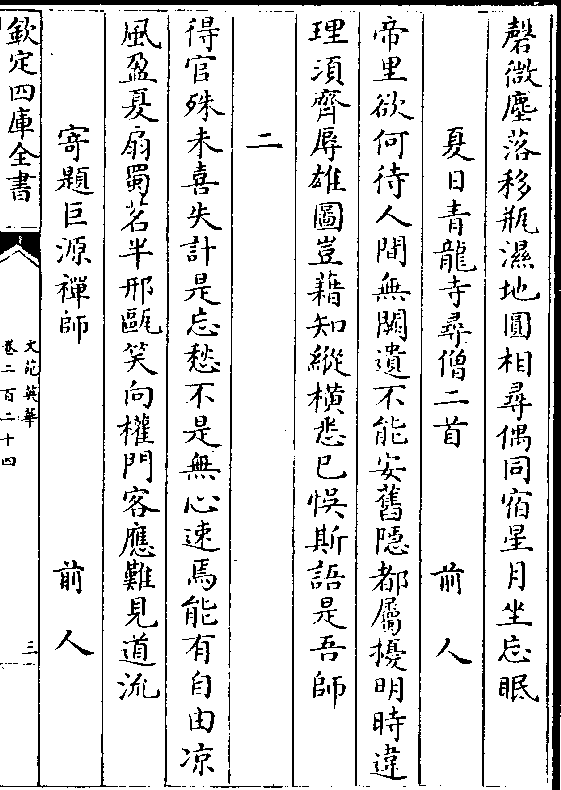 磬微塵落移瓶濕地圓相尋偶同宿星月坐忘眠
夏日青龍寺尋僧二首 前人
帝里欲何待人間無闕遺不能安舊隱都屬擾明時違
理須齊辱雄圖豈藉知縱横悉已悞斯語是吾師
二
得官殊未喜失計是忘愁不是無心速焉能有自由凉
風盈夏扇蜀茗半邢甌笑向權門客應難見道流
寄題巨源禪師 前人
欽定四庫全書
文苑英華
卷二百二十四
三